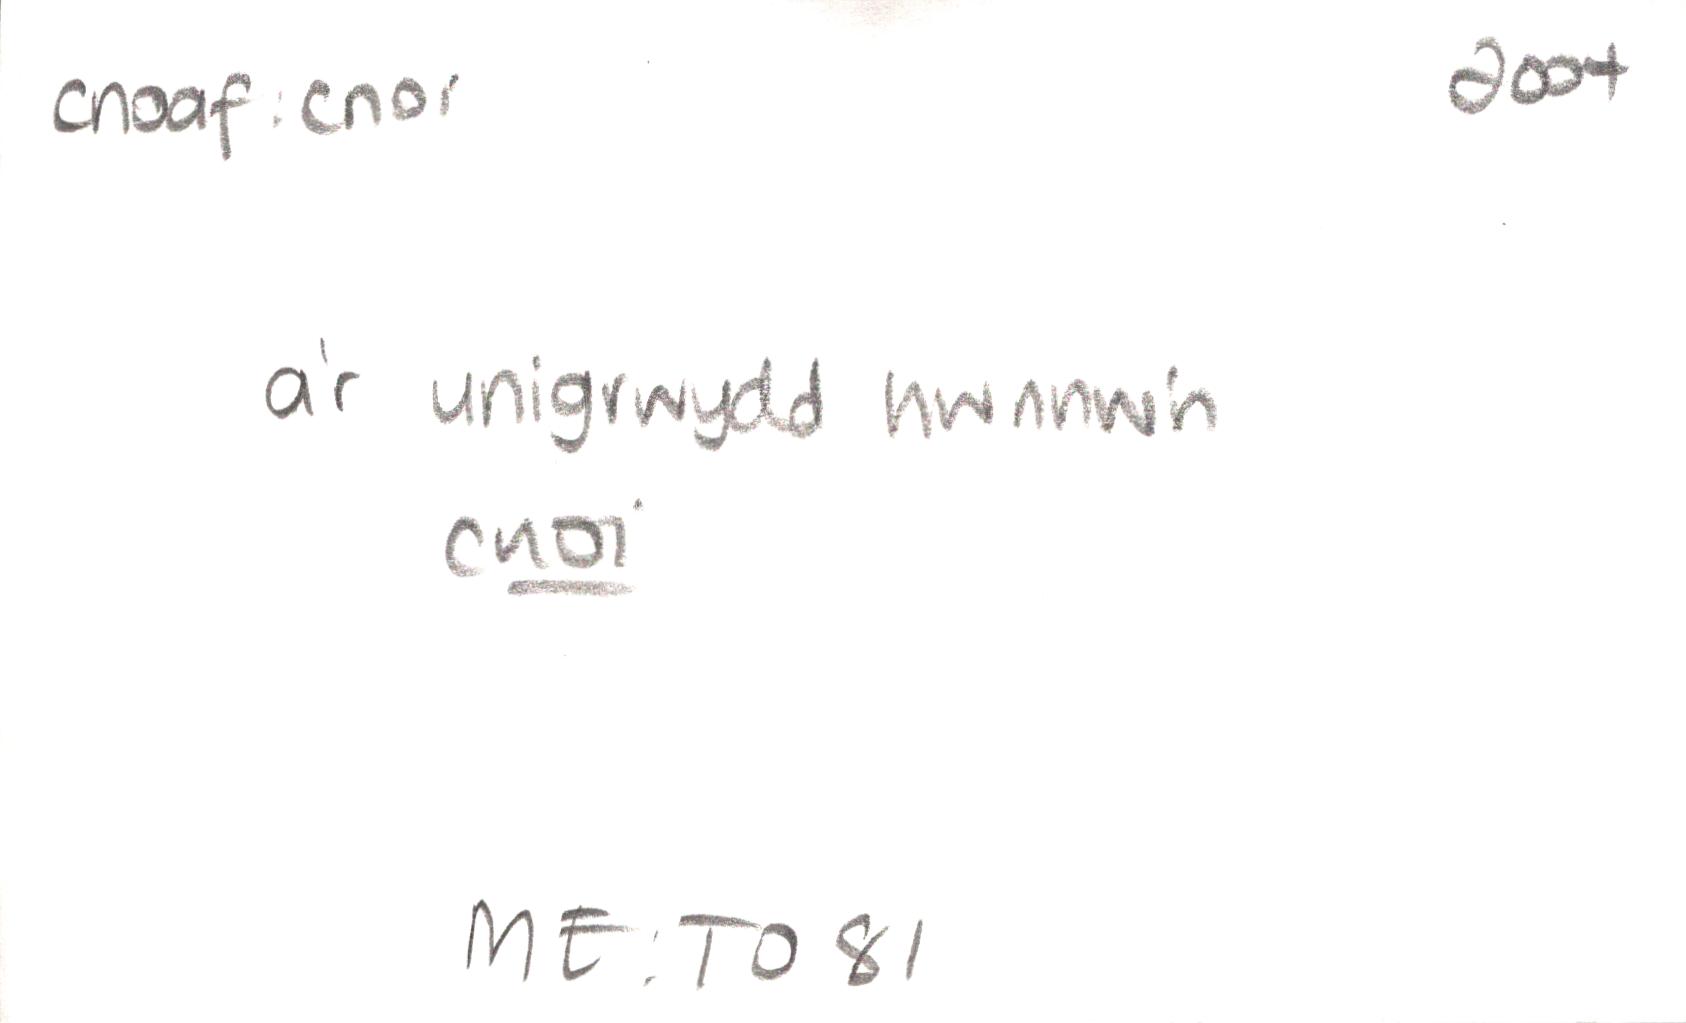 cnoaf: cnoi
2004
a'r unigrwydd hwnnw'n
cnoi
ME: TO 81